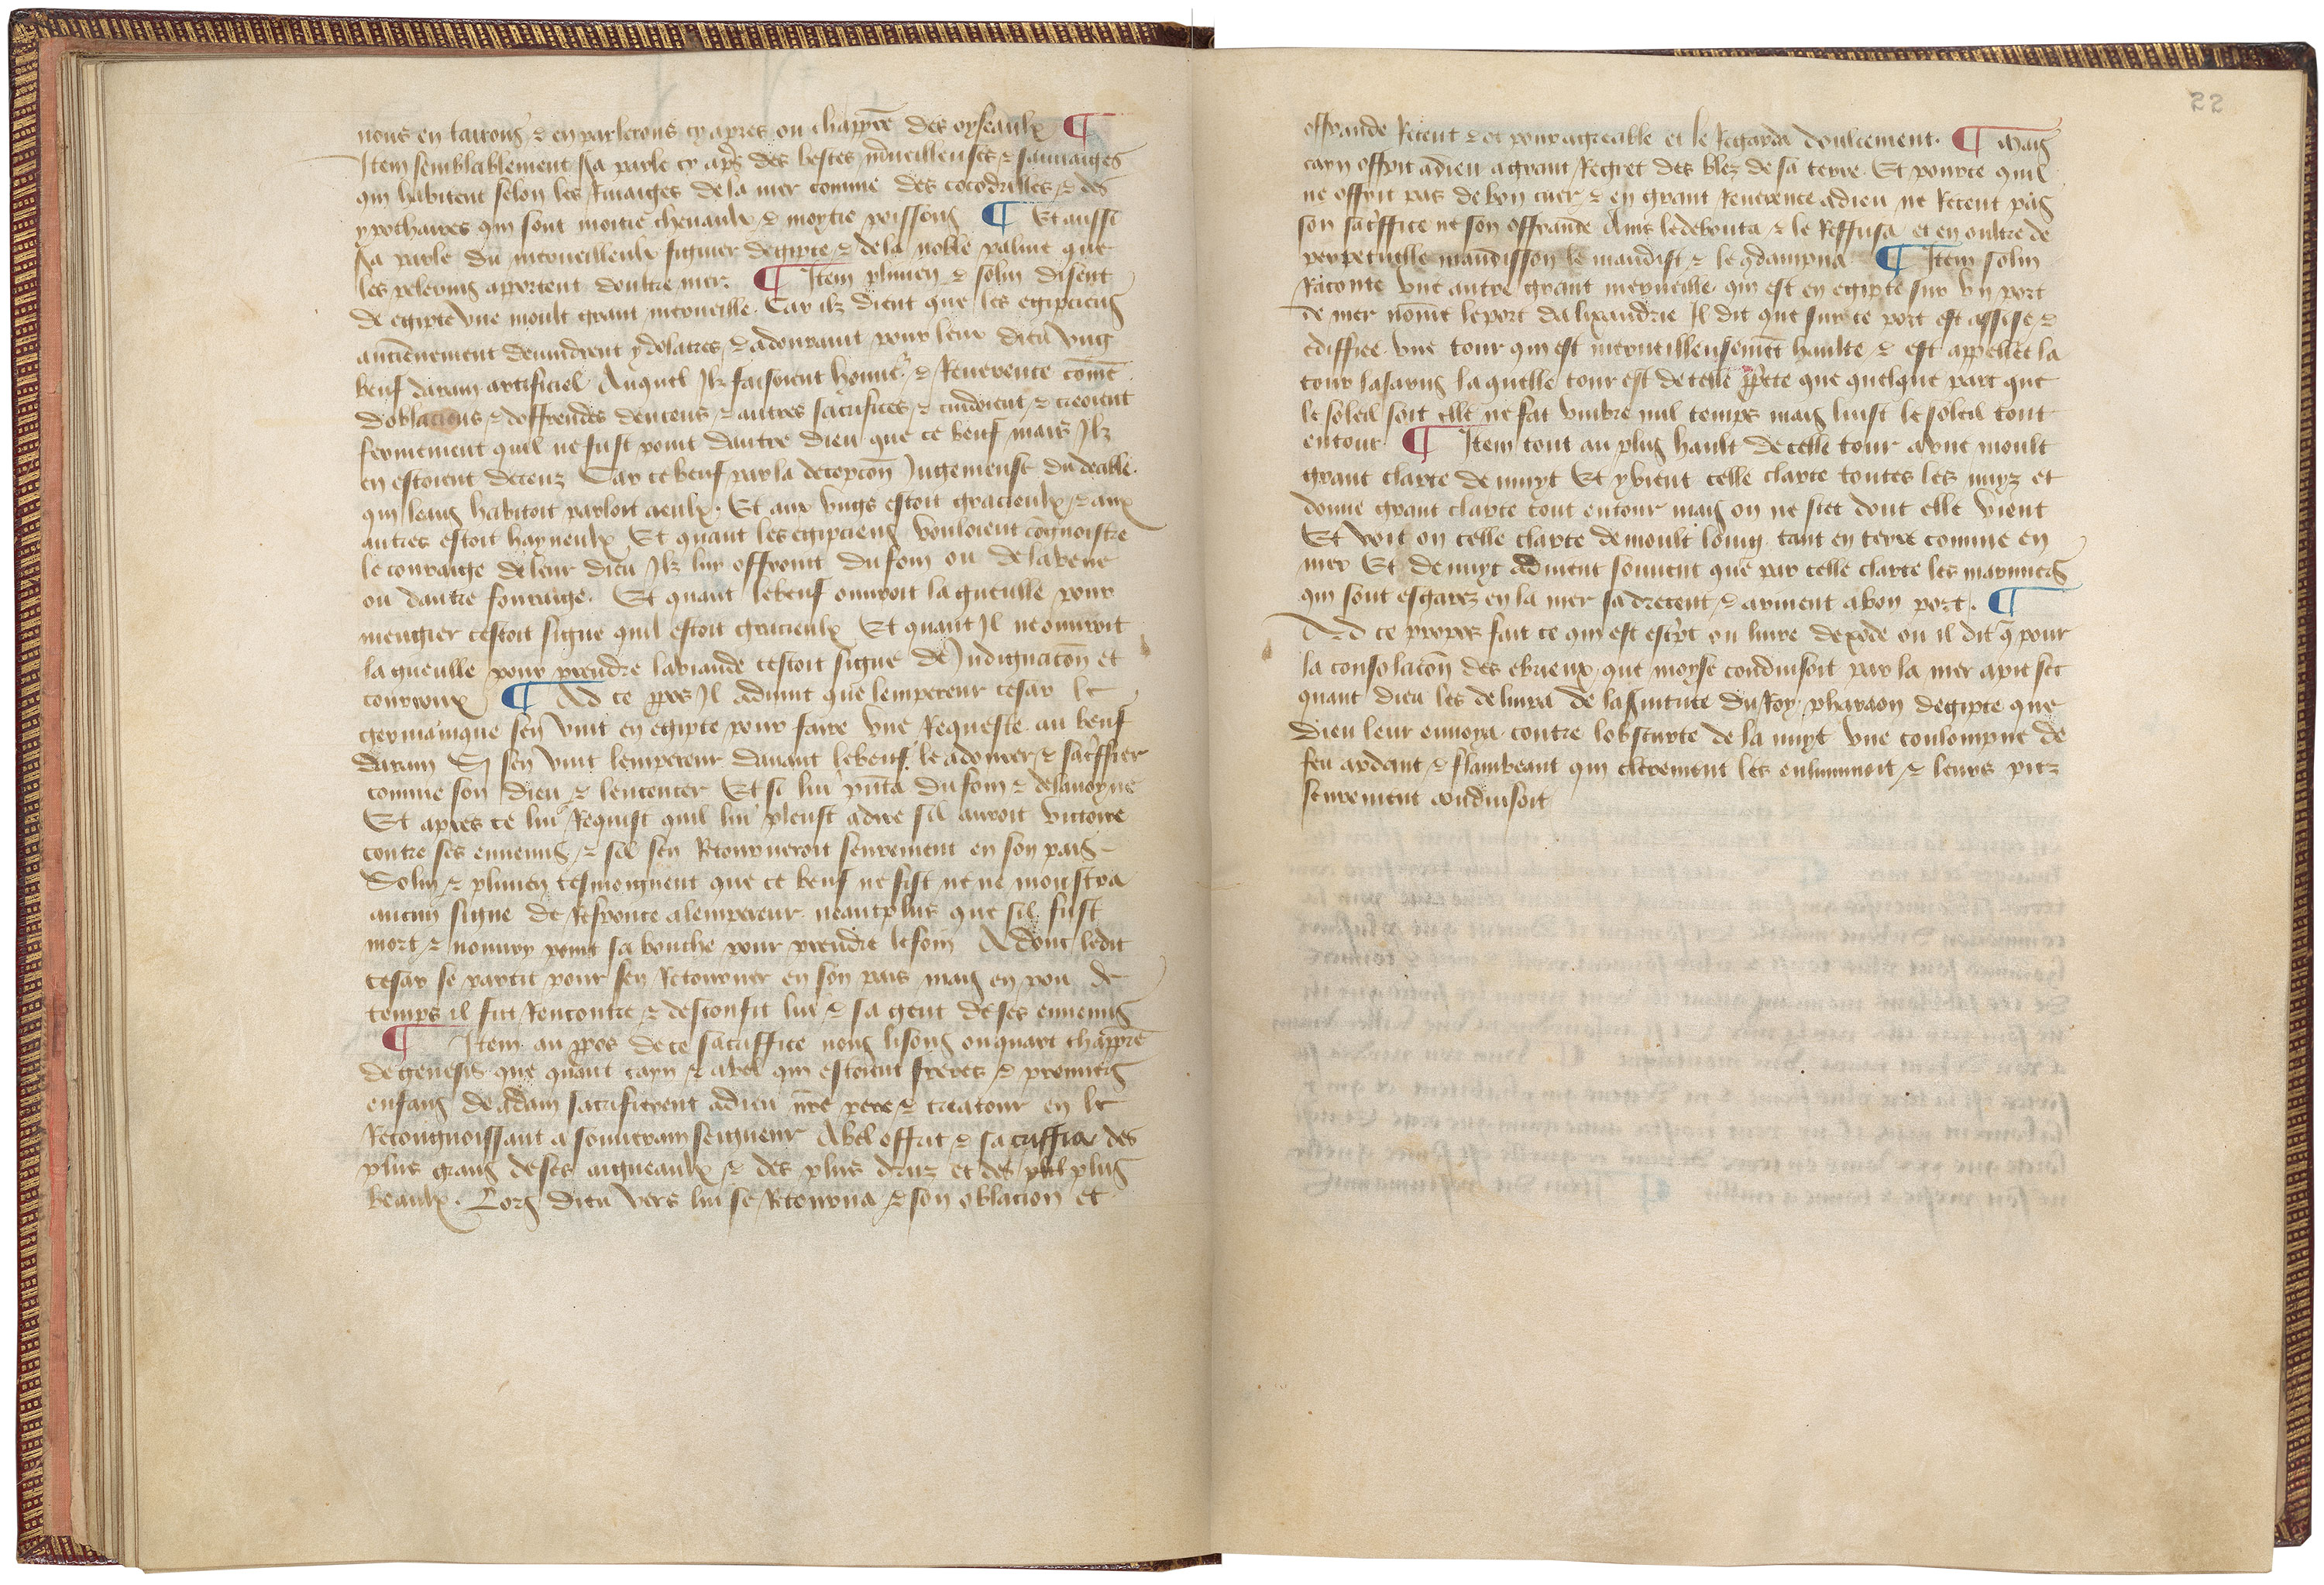 nous en tairons ⁊ en parlerons cy apres ou chappitre des oyseaulx ¶
Item semblablement Ra parle cy aps des bestes merveilleuses ⁊ sauvaiges
qui habitent selon les Rivaiges de la mer comme des cocodrilles ⁊ des
ypothaires qui sont moitie chevaulx ⁊ moytie poissons ¶ Et aussi
Ra parle du merveilleulx figuier degipte ⁊ de la noble palme que
les pelerins aportent doultre mer. ¶ Item plinien ⁊ solin disent
de egipte une moult grant merveille. Car ilz dient que les egipciens
anciennement devindrent ydolatres, ⁊ adouraint pour leur dieu ung
beuf darain artificiel. Auquel Ilz faisoient honneur ⁊ Reverence comme
doblacions ⁊ doffrendes dencens ⁊ autres sacrifices, ⁊ cuidoient ⁊ creoient
fermement quil ne fust point dautre dieu que ce beuf mais Ilz
en estoient deceuz Car ce beuf par la decepcon Ingenieuse du deable.
qui leans habitoit parloit a eulx. Et aux ungs estoit gracieulx ⁊ aux
autres estoit hayneulx Et quant les egipciens vouloient cognoistre
le couraige de leur dieu Ilz luy offroint du foin ou de lavene
ou dautre fouraige. Et quant le beuf ouvroit la gueulle pour
mengier cestoit signe quil estoit gracieulx Et quant Il ne ouvroit
la gueulle pour prendre la viande cestoit signe de Indignacon et
courroux ¶ Ad ce ppos Il advint que lempereur cesar le
germainque sen vint en egipte pour faire une Requeste au beuf
darain Si sen vint lempereur davant le beuf le adourer, ⁊ sacffier
comme son dieu ⁊ lencencer Et si lui pnta du foin ⁊ de lavoyne
Et apres ce lui Requist quil lui pleust a dire sil auroit victoire
contre ses ennemis, ⁊ sil sen Retourneroit seurement en son pais
Solin ⁊ plinien tesmoignent que ce beuf ne fist ne ne monstra
aucun signe de Responce a lempereur neant plus que sil fust
mort ⁊ nouvry point sa bouche pour prendre le foin Adont ledit
cesar se partit pour sen Retourner en son pais mais en pou de
temps il fut Rencontre ⁊ desconfit lui ⁊ sa gent de ses ennemis
¶ Item au ppos de ce sacriffice nous lisons ou quart chappitre
de genesis que quant cayn ⁊ abel qui estoient freres ⁊ premiers
enfans de adam sacrifierent a dieu nre pere ⁊ creatour en le
Recongnoissant a souverain seigneur Abel offrit ⁊ sacriffia des
plus grans de ses aigneaulx ⁊ des plus druz et des plus
beaulx. Lors dieu vers lui se Retourna ⁊ son oblacion et
22
offrande Receut ⁊ ot pour agreable et le Regarda doulcement. ¶ Mais
cayn offrit a dieu a grant Regret des blez de sa terre. Et pource quil
ne offrit pas de bon cuer ⁊ en grant Reverence a dieu ne Receut pas
son sacffice ne son offrande Ains le debouta ⁊ le Reffusa et en oultre de
perpetuelle maudisson le maudist ⁊ le condampna ¶ Item solin
Raconte une autre grant merveille qui est en egipte sur un port
de mer nomme le port dalixandrie Il dit que sur ce port est assise ⁊
ediffiee une tour qui est merveilleusement haulte ⁊ est appellee la
tour lasarus laquelle tour est de telle pprete que quelque part que
le soleil soit elle ne fat umbre nul temps mais luist le soleil tout
entour ¶ Item tout au plus hault de celle tour a une moult
grant clarte de nuyt Et y vient celle clarte toutes les nuyz et
donne grant clarte tout entour mais on ne scet dont elle vient
Et voit on celle clarte de moult loing tant en terre comme en
mer Et de nuyt advient souvent que par celle clarte les mariniers
qui sont esgarez en la mer sadrecent ⁊ arivent a bon port. ¶
Ad ce propos fait ce qui est escrpt ou livre dexode ou il dit q pour
la consolacon des ebrieux que moyse conduisoit par la mer a pie sec
quant dieu les delivra de la servitute du Roy pharaon degipte que
dieu leur envoya contre lobscurte de la nuyt une coulompne de
feu ardent ⁊ flambeant qui clerement les enluminoit ⁊ leurs piez
seurement conduisoit